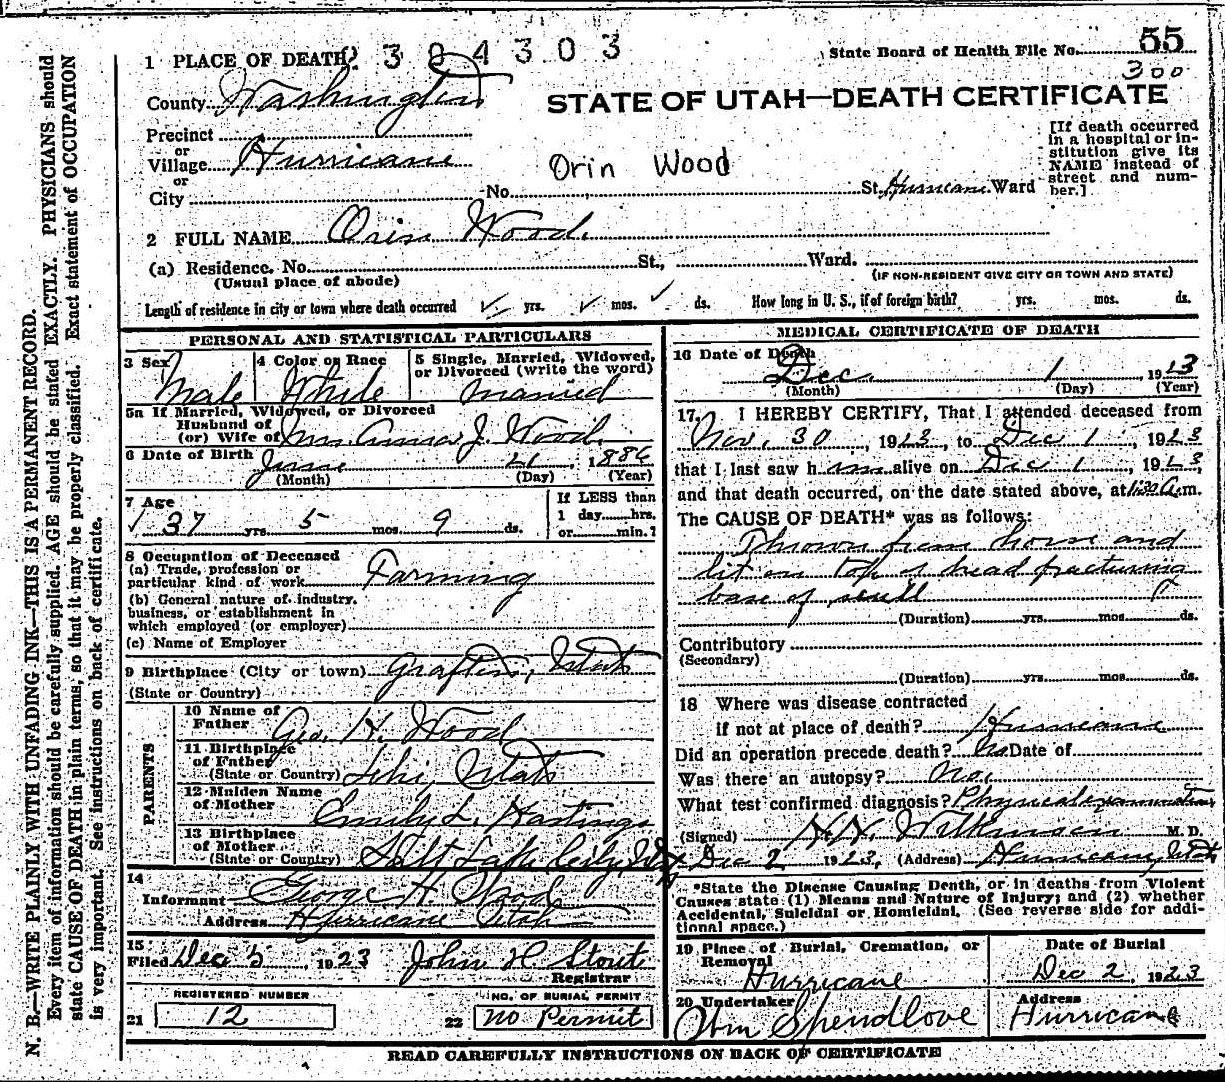 1 PLACE OF DEATH 2 3 0 4 3 0 3
State Board of Health File No. 55
300
County Washington
STATE OF UTAH—DEATH CERTIFICATE
Precinct
or
Village Hurricane
or
City
Orin Wood
No. St. Hurricane Ward
[If death occurred in a hospital or institution give its NAME instead of street and number.]
2 FULL NAME Orin Wood.
(a) Residence. No. St., Ward.
(Usual place of abode)
(IF NON-RESIDENT GIVE CITY OR TOWN AND STATE)
Length of residence in city or town where death occurred ✓ yrs. ✓ mos. ✓ ds. How long in U. S., if of foreign birth? yrs. mos. ds.
PERSONAL AND STATISTICAL PARTICULARS
3 Sex Male
4 Color or Race White
5 Single, Married, Widowed, or Divorced (write the word) married
5a If Married, Widowed, or Divorced
Husband of
(or) Wife of Mrs Anna J. Wood.
6 Date of Birth June 21, 1886
(Month) (Day) (Year)
7 Age
37 yrs 5 mos. 9 ds.
If LESS than
1 day hrs.
or min.?
8 Occupation of Deceased
(a) Trade, profession or
particular kind of work Farming
(b) General nature of industry,
business, or establishment in
which employed (or employer)
(c) Name of Employer
9 Birthplace (City or town) Grafton, Utah
(State or Country)
PARENTS
10 Name of
Father Geo. H. Wood
11 Birthplace
of Father
(State or Country) Lehi, Utah
12 Maiden Name
of Mother Emily L. Hastings
13 Birthplace
of Mother
(State or Country) Salt Lake City, Ut
14
Informant George H. Wood
Address Hurricane Utah
15
Filed Dec 3, 1923 John H Stout
Registrar
REGISTERED NUMBER
21 12
NO. OF BURIAL PERMIT
22 no Permit
MEDICAL CERTIFICATE OF DEATH
16 Date of Death
Dec. 1, 1923
(Month) (Day) (Year)
17. I HEREBY CERTIFY, That I attended deceased from
Nov. 30, 1923, to Dec 1, 1923
that I last saw h im alive on Dec 1, 1923,
and that death occurred, on the date stated above, at 1:30 A.m.
The CAUSE OF DEATH* was as follows:
Thrown from horse and
lit on top of head fracturing
base of skull
(Duration) yrs. mos. ds.
Contributory
(Secondary)
(Duration) yrs. mos. ds.
18 Where was disease contracted
if not at place of death? Hurricane
Did an operation precede death? No Date of
Was there an autopsy? No.
What test confirmed diagnosis? Physical examination
(Signed) Wilkinson M. D.
Dec 2 1923, (Address) Hurricane, Utah
*State the Disease Causing Death, or in deaths from Violent
Causes state (1) Means and Nature of Injury; and (2) whether
Accidental, Suicidal or Homicidal. (See reverse side for addi-
tional space.)
19 Place of Burial, Cremation, or
Removal
Hurricane
Date of Burial
Dec 2, 1923
20 Undertaker
Wm Spendlove
Address
Hurricane
READ CAREFULLY INSTRUCTIONS ON BACK OF CERTIFICATE
N. B.—WRITE PLAINLY WITH UNFADING INK—THIS IS A PERMANENT RECORD.
Every item of information should be carefully supplied. AGE should be stated EXACTLY. PHYSICIANS should
state CAUSE OF DEATH in plain terms, so that it may be properly classified. Exact statement of OCCUPATION
is very important. See instructions on back of certificate.